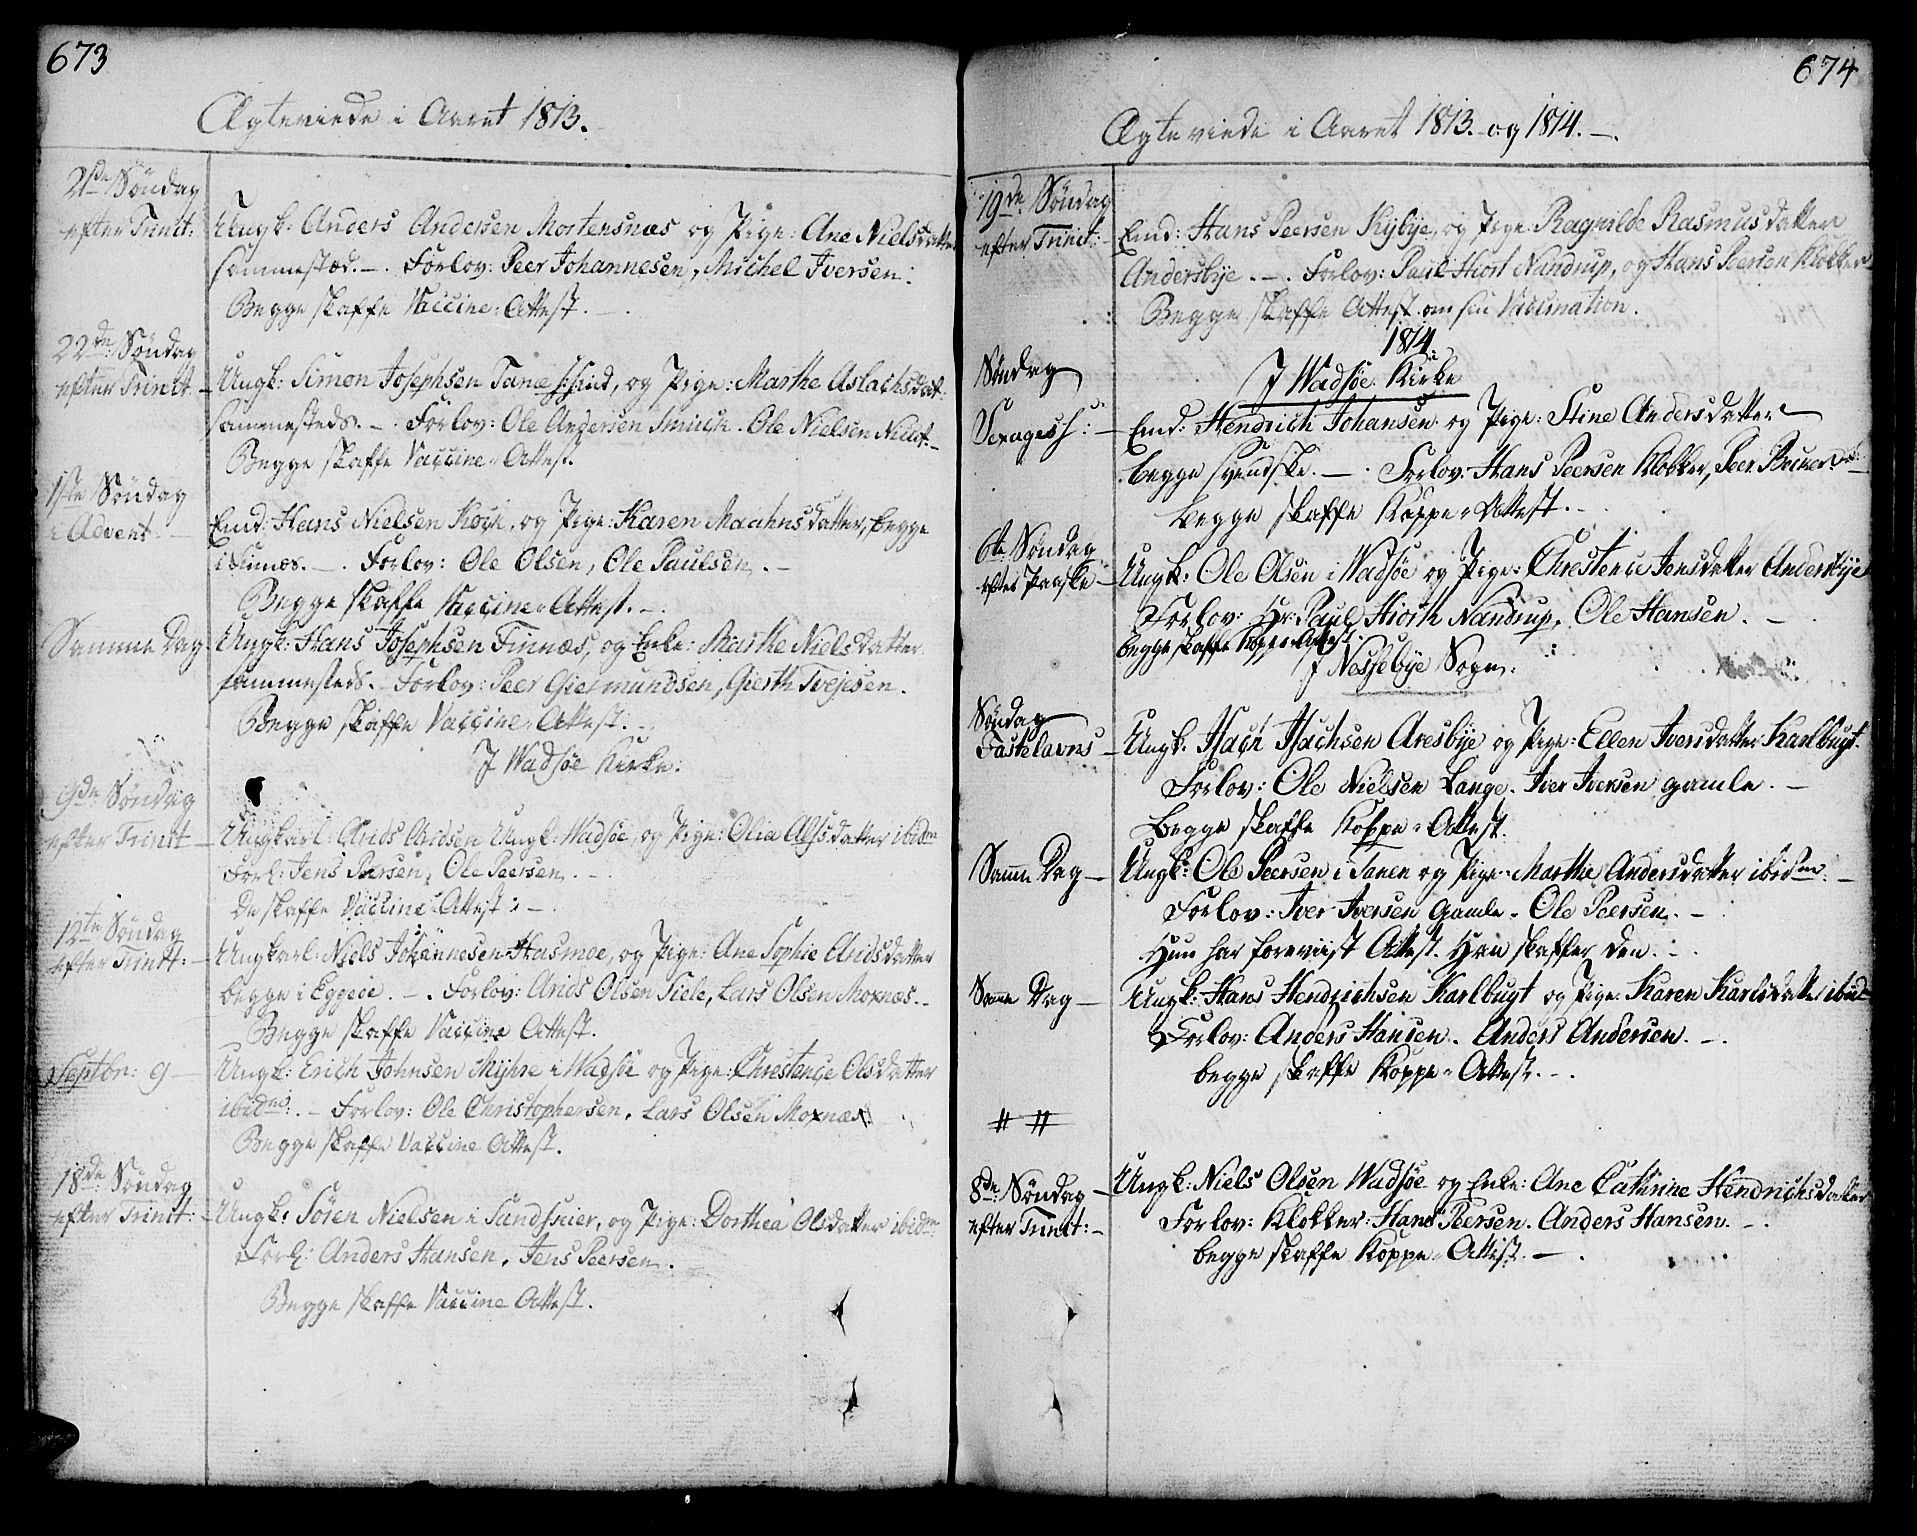 673
Ægteviede i Aaret 1813.
21de Søndag
efter Trinit:
Ungk: Anders Andersen Mortensnæs og Pige: Ane Nielsdatter
sammested. - . Forlov: Peer Johannesen, Michel Iversen:
Begge skaffe Vaccine-Attest. -
22de Søndag
efter Trinit. -
Ungk: Simon Josephsen Tanæ , og Pige: Marthe Aslachsdat:
sammesteds. - . Forlov: Ole Andersen Smuch. Ole Nielsen
Begge skaffe Vaccine-Attest.
1ste Søndag
i Advent. -
Emd: Hans Nielsen Kock, og Pige: Karen Maahnsdatter, begge
i Finnæs. - . Forlov: Ole Olsen, Ole Paulsen. -
Begge skaffe Vaccine-Attest. -
Samme Dag
Ungk: Hans Josephsen Finnæs, og Enke: Marthe Nielsdatter
sammesteds. - Forlov: Peer Giermundsen, Gierth Tvejesen.
Begge skaffe Vaccine-Attest. -
I Wadsøe Kirke:
9de Søndag
efter Trinit -
Ungkarl: Arids Aridsen Ungk: Wadsøe, og Pige: Olia Alfsdatter ibidm
Forl: Jens Peersen, Ole Peersen. -
De skaffe Vaccine-Attest: -
12te Søndag
efter Trinit: -
Ungkarl: Niels Johannesen Hasmoe, og Pige: Ane Sophie Aridsdatter
begge i Eggeøe. - . Forlov: Arids Olsen Tiele, Lars Olsen Moxnæs. -
Begge skaffe Vaccine Attest.
Septbr: 9 -
Ungk: Erich Johnsen Myhre i Wadsøe og Pige: Chrestence Olsdatter
ibidm: . - Forlov: Ole Christophersen, Lars Olsen Moxnæs:
Begge skaffe Vaccine Attest.
18de Søndag
efter Trinit: -
Ungk: Søren Nielsen i Sandskier, og Pige: Dorthea Olsdatter ibidm:
Forl: Anders Hansen, Jens Peersen.
Begge skaffe Vaccine Attest.
674
Ægteviede i Aaret 1813. og 1814. -
19de Søndag
efter Trinit:
Emd: Hans Peersen Kybye, og Pige: Ragnilde Rasmusdatter
Andersbye. - . Forlov: Paul Hiort Nandrup, og Hans Peersen Klokker
Begge skaffe Attest om sin Vaccination.
1814.
I Wadsøe Kirke
Søndag
Sexagesh: -
Emd: Hendrich Johansen og Pige: Stine Andersdatter
begge svendske. - . Forlov: Hans Peersen Klokker, Peer
begge skaffe Koppe-Attest. -
6te Søndag
efter Paaske -
Ungk: Ole Olsen i Wadsøe og Pige: Chrestence Jensdatter Andersbye
Forlov: Hr: Paul Hiorth Nandrup, Ole Hansen. -
begge skaffe Koppe-Attest.
I Nessebye Sogn:
Søndag
Fastelavns -
Ungk. Isach Isachsen Aresbye og Pige: Ellen Iversdatter Karlbugt.
Forlov: Ole Nielsen Lange. Iver Iversen gamle. -
begge skaffe Koppe-Attest.
Samme Dag -
Ungk: Ole Peersen i Tanen og Pige: Marthe Andersdatter ibidm. -
Forlov: Iver Iversen Gamle. Ole Peersen. -
Hun har foreviist Attest. Han skaffer den. -
Samme Dag -
Ungk: Hans Hendrichsen Karlbugt og Pige: Karen Karlsdatter ibid:
Forlov: Anders Hansen. Anders Andersen. -
begge skaffe Koppe-Attest. -
# #
8de Søndag -
efter Trinit: -
Ungk: Niels Olsen Wadsøe og Enke: Ane Cathrine Hendrichsdatter
Forlov: Klokker: Hans Peersen. Anders Hansen. -
begge skaffe Koppe-Attest. -